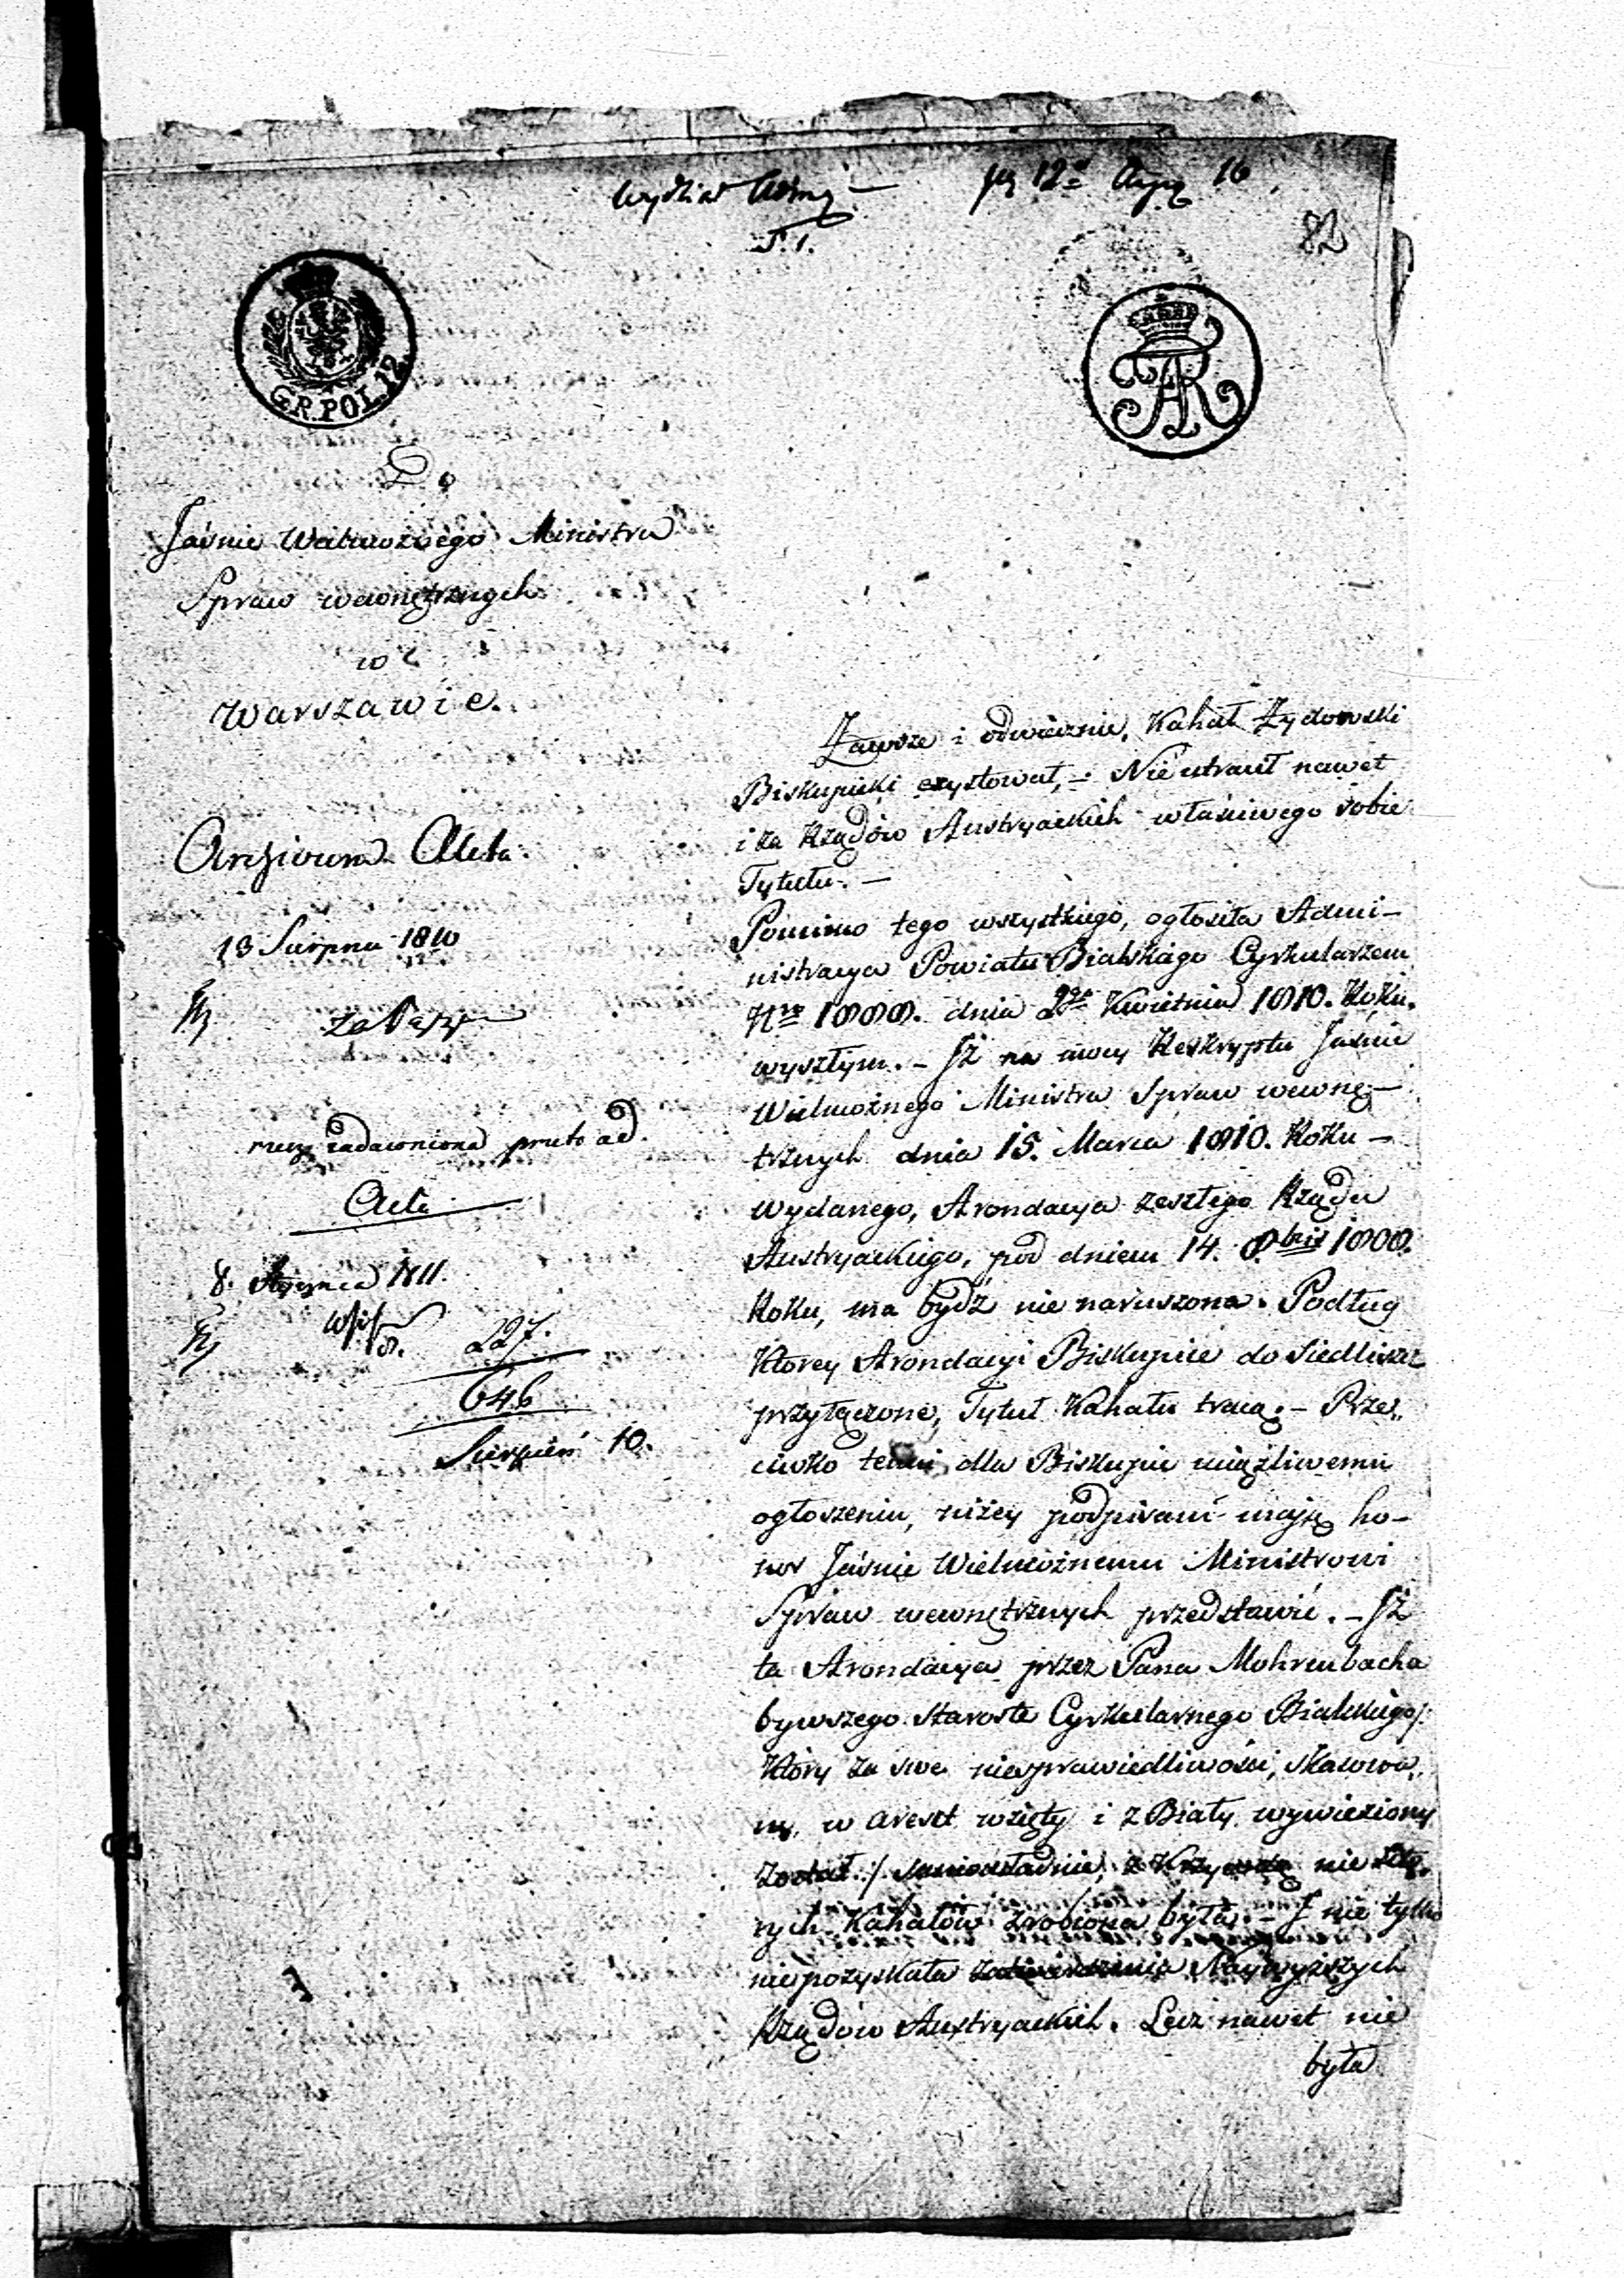 Wydział Admy —
12 Augu 16
S. 1.
82
GR.POL.12.
FAR
Do
Jaśnie Wielmożnego Ministra
Spraw wewnętrznych
w
Warszawie.
Zawsze i odwiecznie, Kahał Żydowski
Biskupicki exystował, – Nie utracił nawet
i za Rządów Austryackich właściwego sobie
Tytułu. —
Pomimo tego wszystkiego, ogłosiła Admi–
nistracya Powiatu Bialskiego Cyrkularzem
Nro 1888. dnia 2go Kwietnia 1810. Roku.
wyszłym. – Iż na mocy Reskryptu Jaśnie
Wielmożnego Ministra Spraw wewnę–
trznych dnia 15. Marca 1810. Roku –
wydanego, Arondacya zeszłego Rządu
Austryackiego, pod dniem 14. 8bris 1808.
Roku, ma bydź nie naruszona. Podług
Którey Arondacyi Biskupice do Siedliszcz
przyłączone, Tytuł Kahału tracą. – Prze„
ciwko temu, dla Biskupic uciążliwemu
ogłoszeniu, niżey podpisani mają ho–
nor Jaśnie Wielmożnemu Ministrowi
Spraw wewnętrznych przedstawić. – Iż
ta Arondacya przez Pana Mohrenbacha
bywszego Starostę Cyrkularnego Bialskiego /:
Który za swe niesprawiedliwości, skassowa„
ny, w areszt wzięty i z Biały wywieziony
został :/ z Krzywdą nie
nych Kahałów zrobiona była. – I nie tylko
nie pozyskała zatwierdzenia Naywyższych
Rządów Austryackich. Lecz nawet nie
była
Archivum Acta.
13 Sierpnia 1810
rzecz zadawniona przeto ad
Acta
8. Stycznia 1811.
227.
646
Sierpień 10.